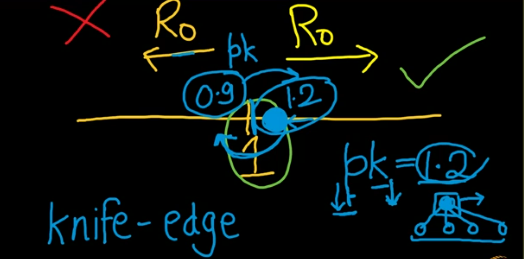 R₀ R₀
pk
0.9 1.2
1
pk = 1.2
knife-edge